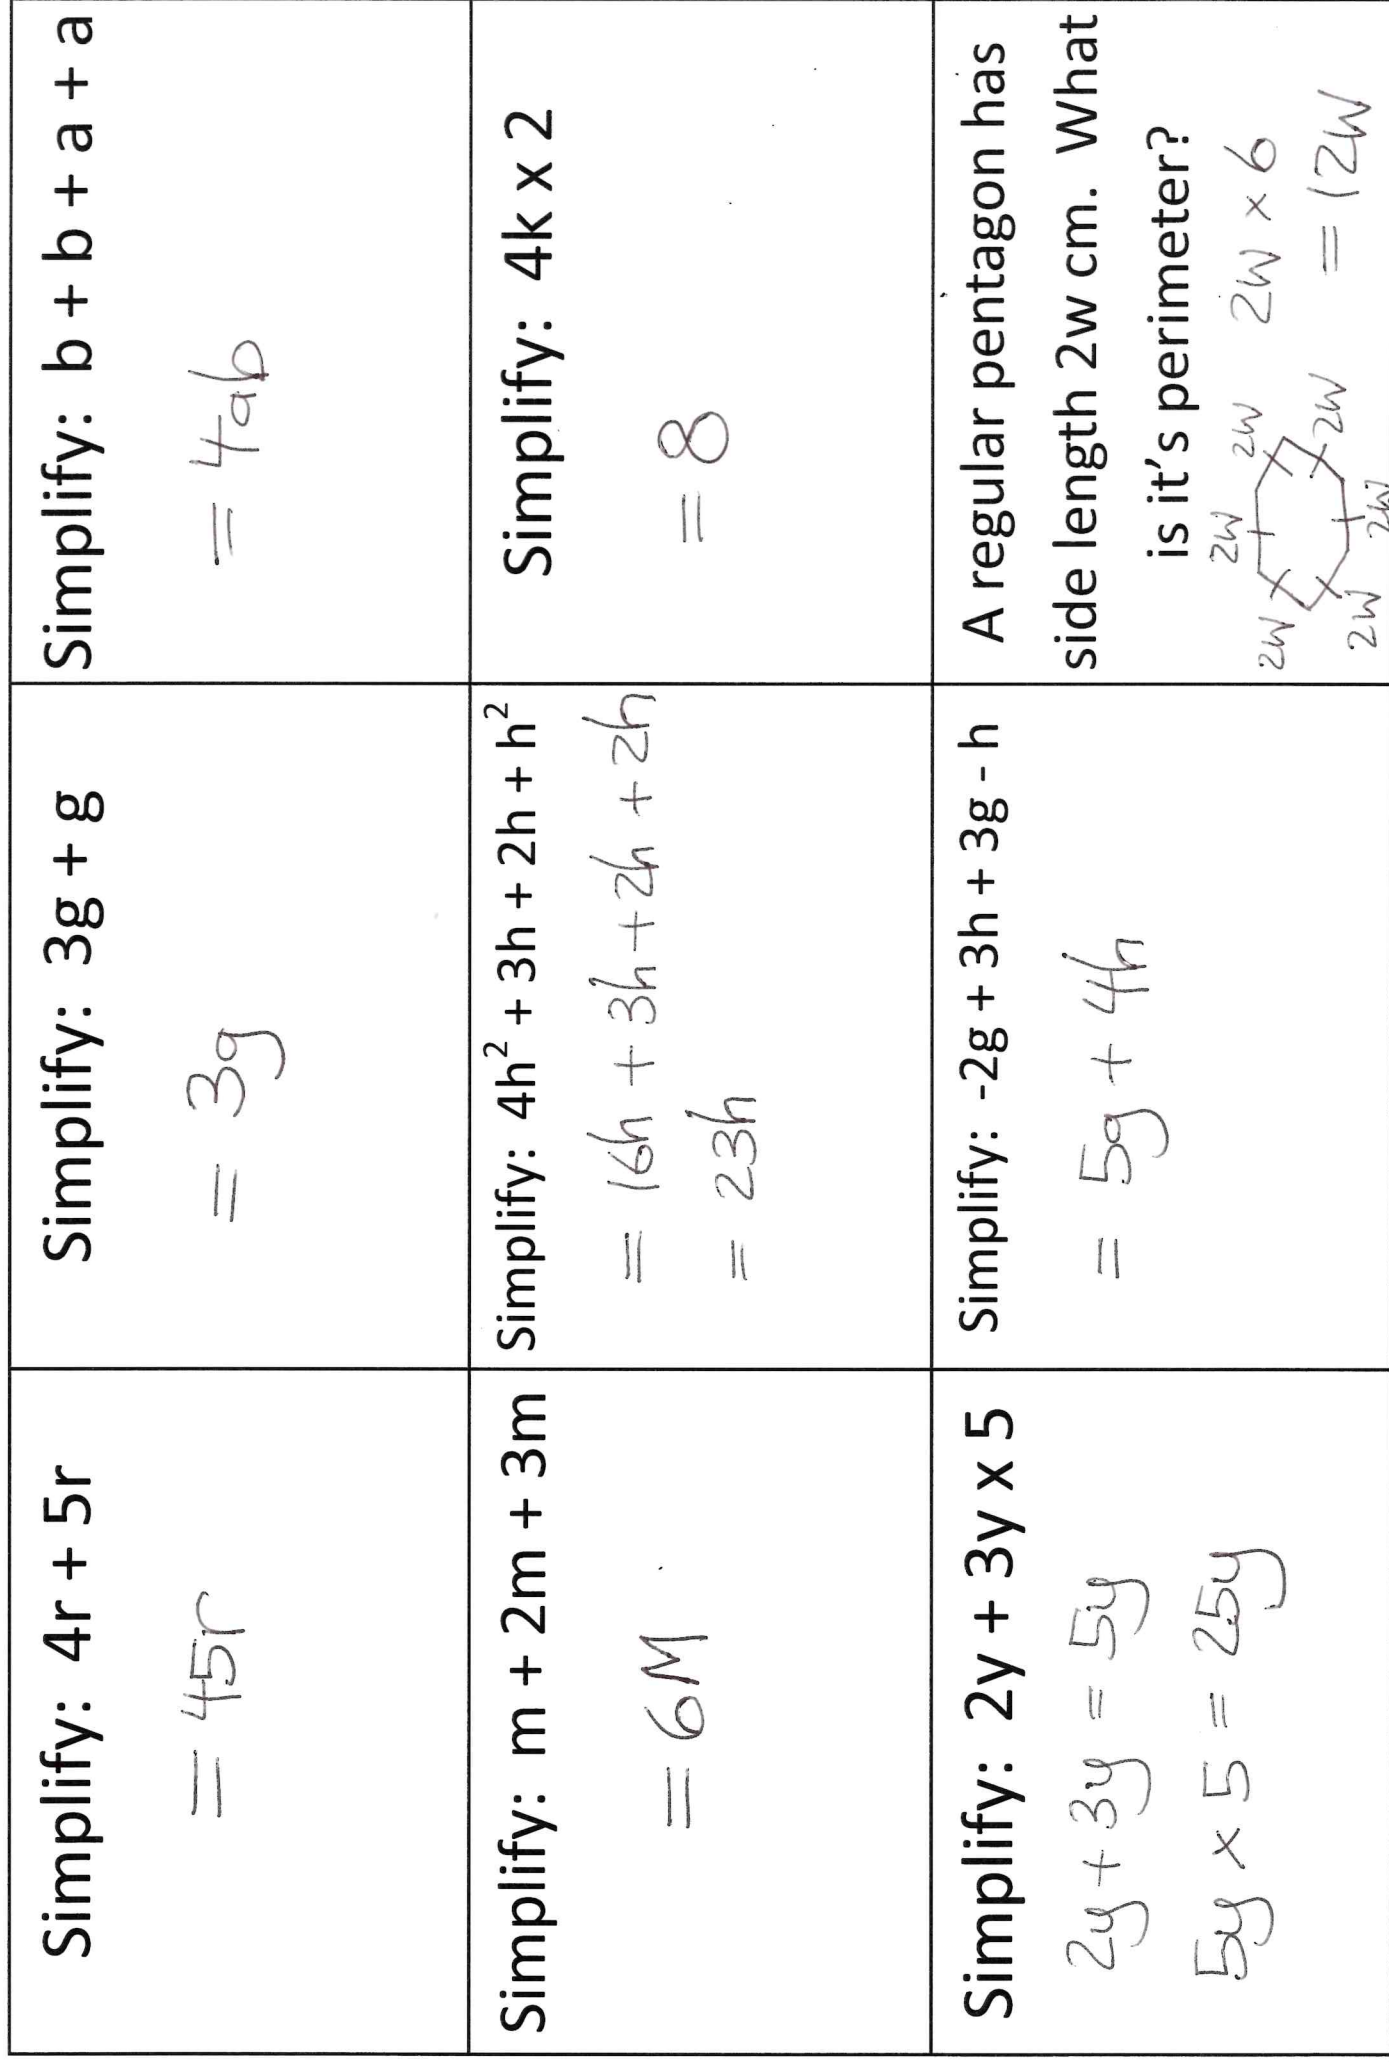 Simplify: 4r + 5r
= 45r
Simplify: 3g + g
= 3g
Simplify: b + b + a + a
= 4ab
Simplify: m + 2m + 3m
= 6M
Simplify: 4h² + 3h + 2h + h²
= 16h + 3h + 2h + 2h
= 23h
Simplify: 4k x 2
= 8
Simplify: 2y + 3y x 5
2y + 3y = 5y
5y × 5 = 25y
Simplify: -2g + 3h + 3g - h
= 5g + 4h
A regular pentagon has
side length 2w cm. What
is it's perimeter?
2W
2W
2W
2W
2W
2W
2W × 6
= 12W